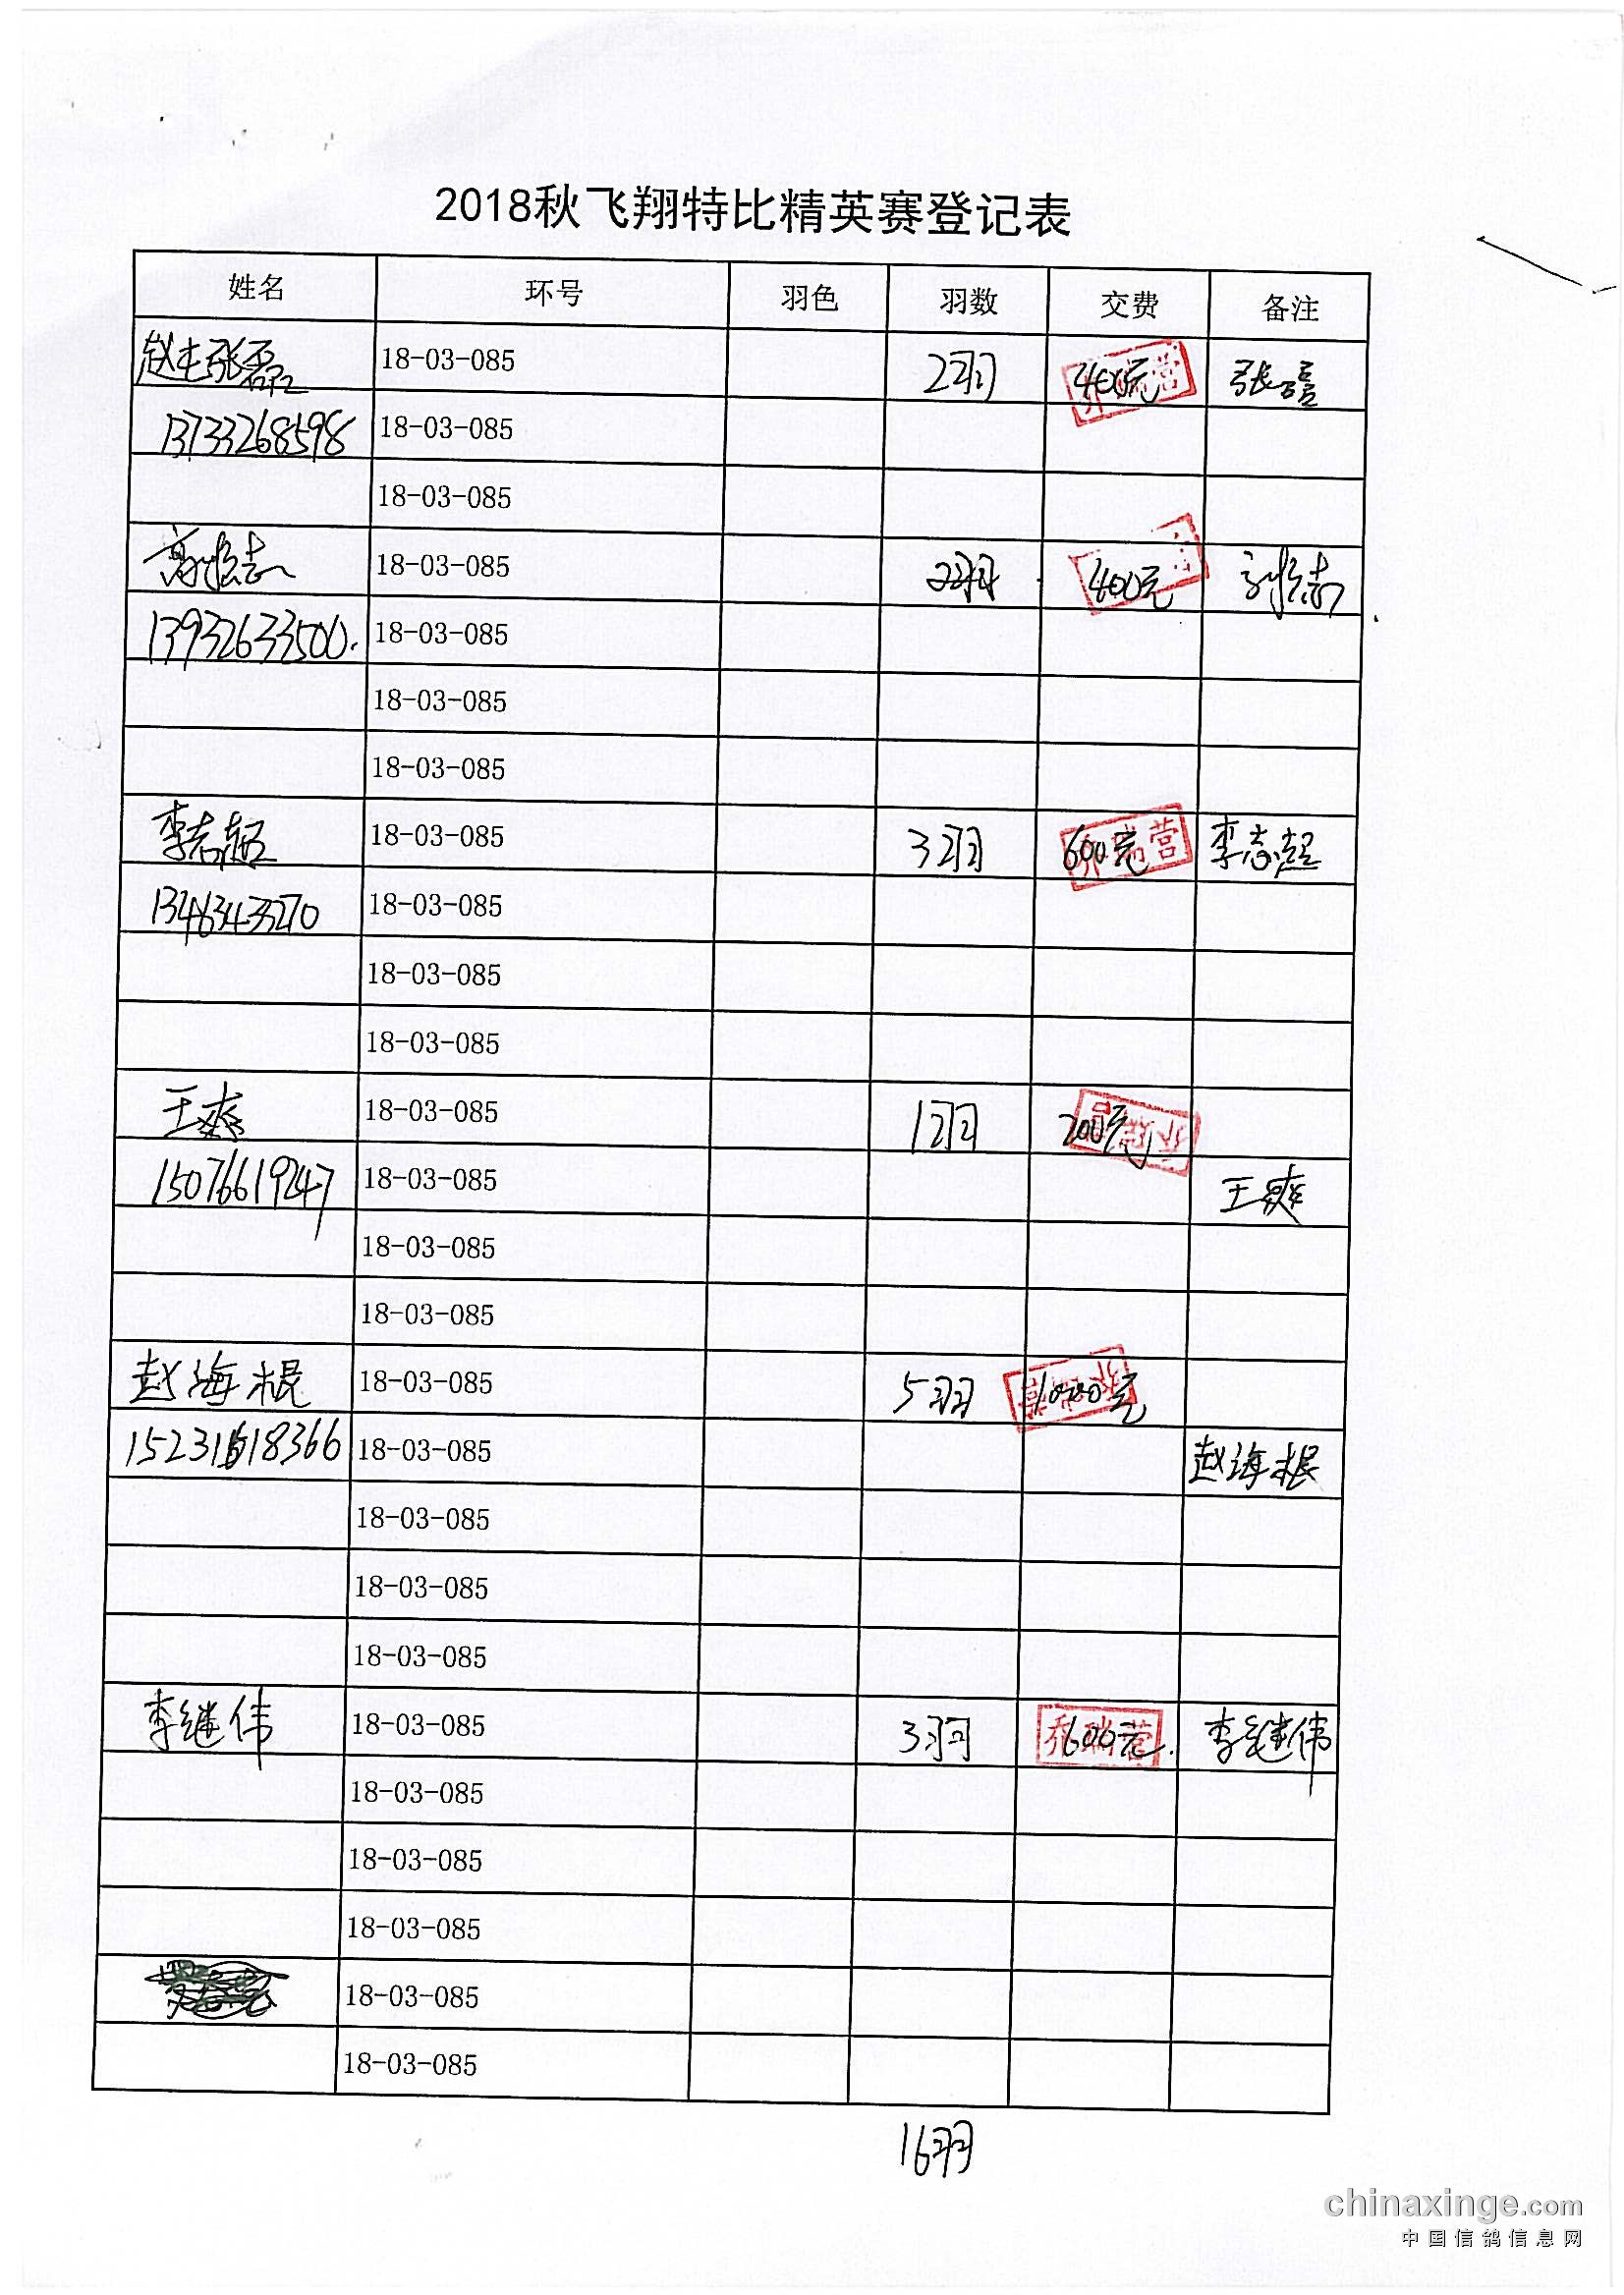 2018秋飞翔特比精英赛登记表
姓名 环号 羽色 羽数 交费 备注
赵 张磊 18-03-085 2羽 400元 张
13733268598 18-03-085
18-03-085
志 18-03-085 2羽 400元 志
13932633500. 18-03-085
18-03-085
18-03-085
李志超 18-03-085 3羽 600元 乔瑞营 李志超
13463433270 18-03-085
18-03-085
18-03-085
王爽 18-03-085 1羽 200元
15076619247 18-03-085 王爽
18-03-085
18-03-085
赵海根 18-03-085 5羽 1000元
18-03-085 赵海根
18-03-085
18-03-085
18-03-085
李继伟 18-03-085 3羽 600元. 乔瑞营 李继伟
18-03-085
18-03-085
18-03-085
18-03-085
18-03-085
16羽
chinaxinge.com
中国信鸽信息网